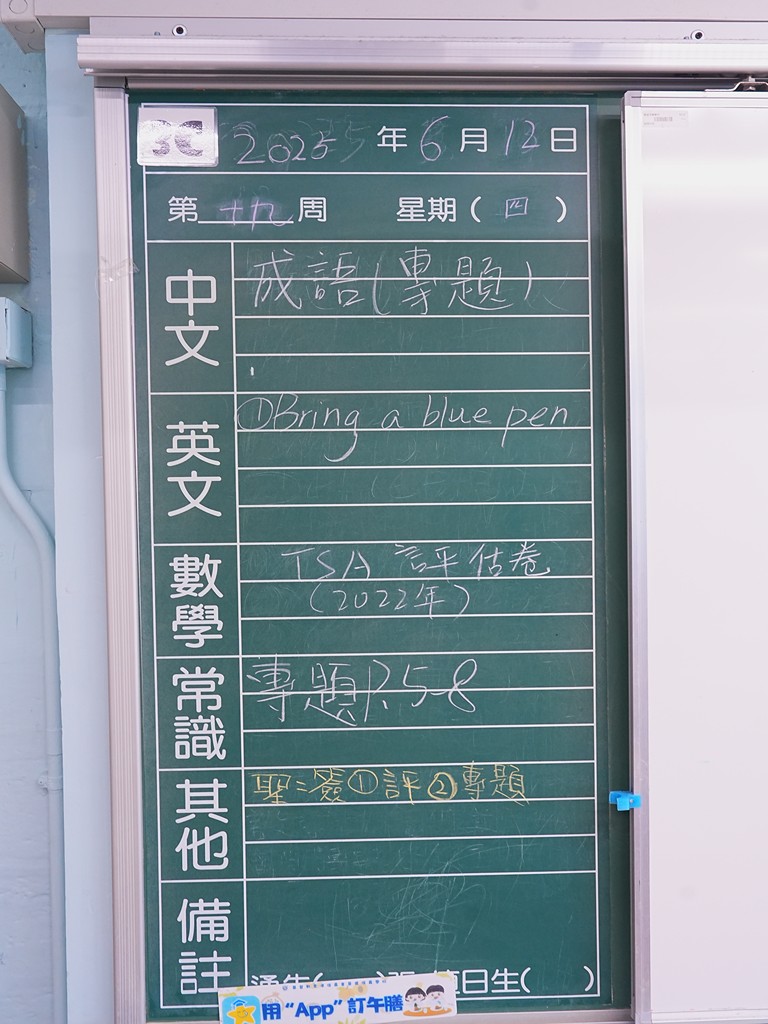 3C 2025年6月12日
第十九周 星期(四)
中文 成語(專題)
英文 ①Bring a blue pen
數學 TSA 評估卷
(2022年)
常識 專題P.5-8
其他 聖:簽①評②專題
備註
日生( )
用“App”訂午膳